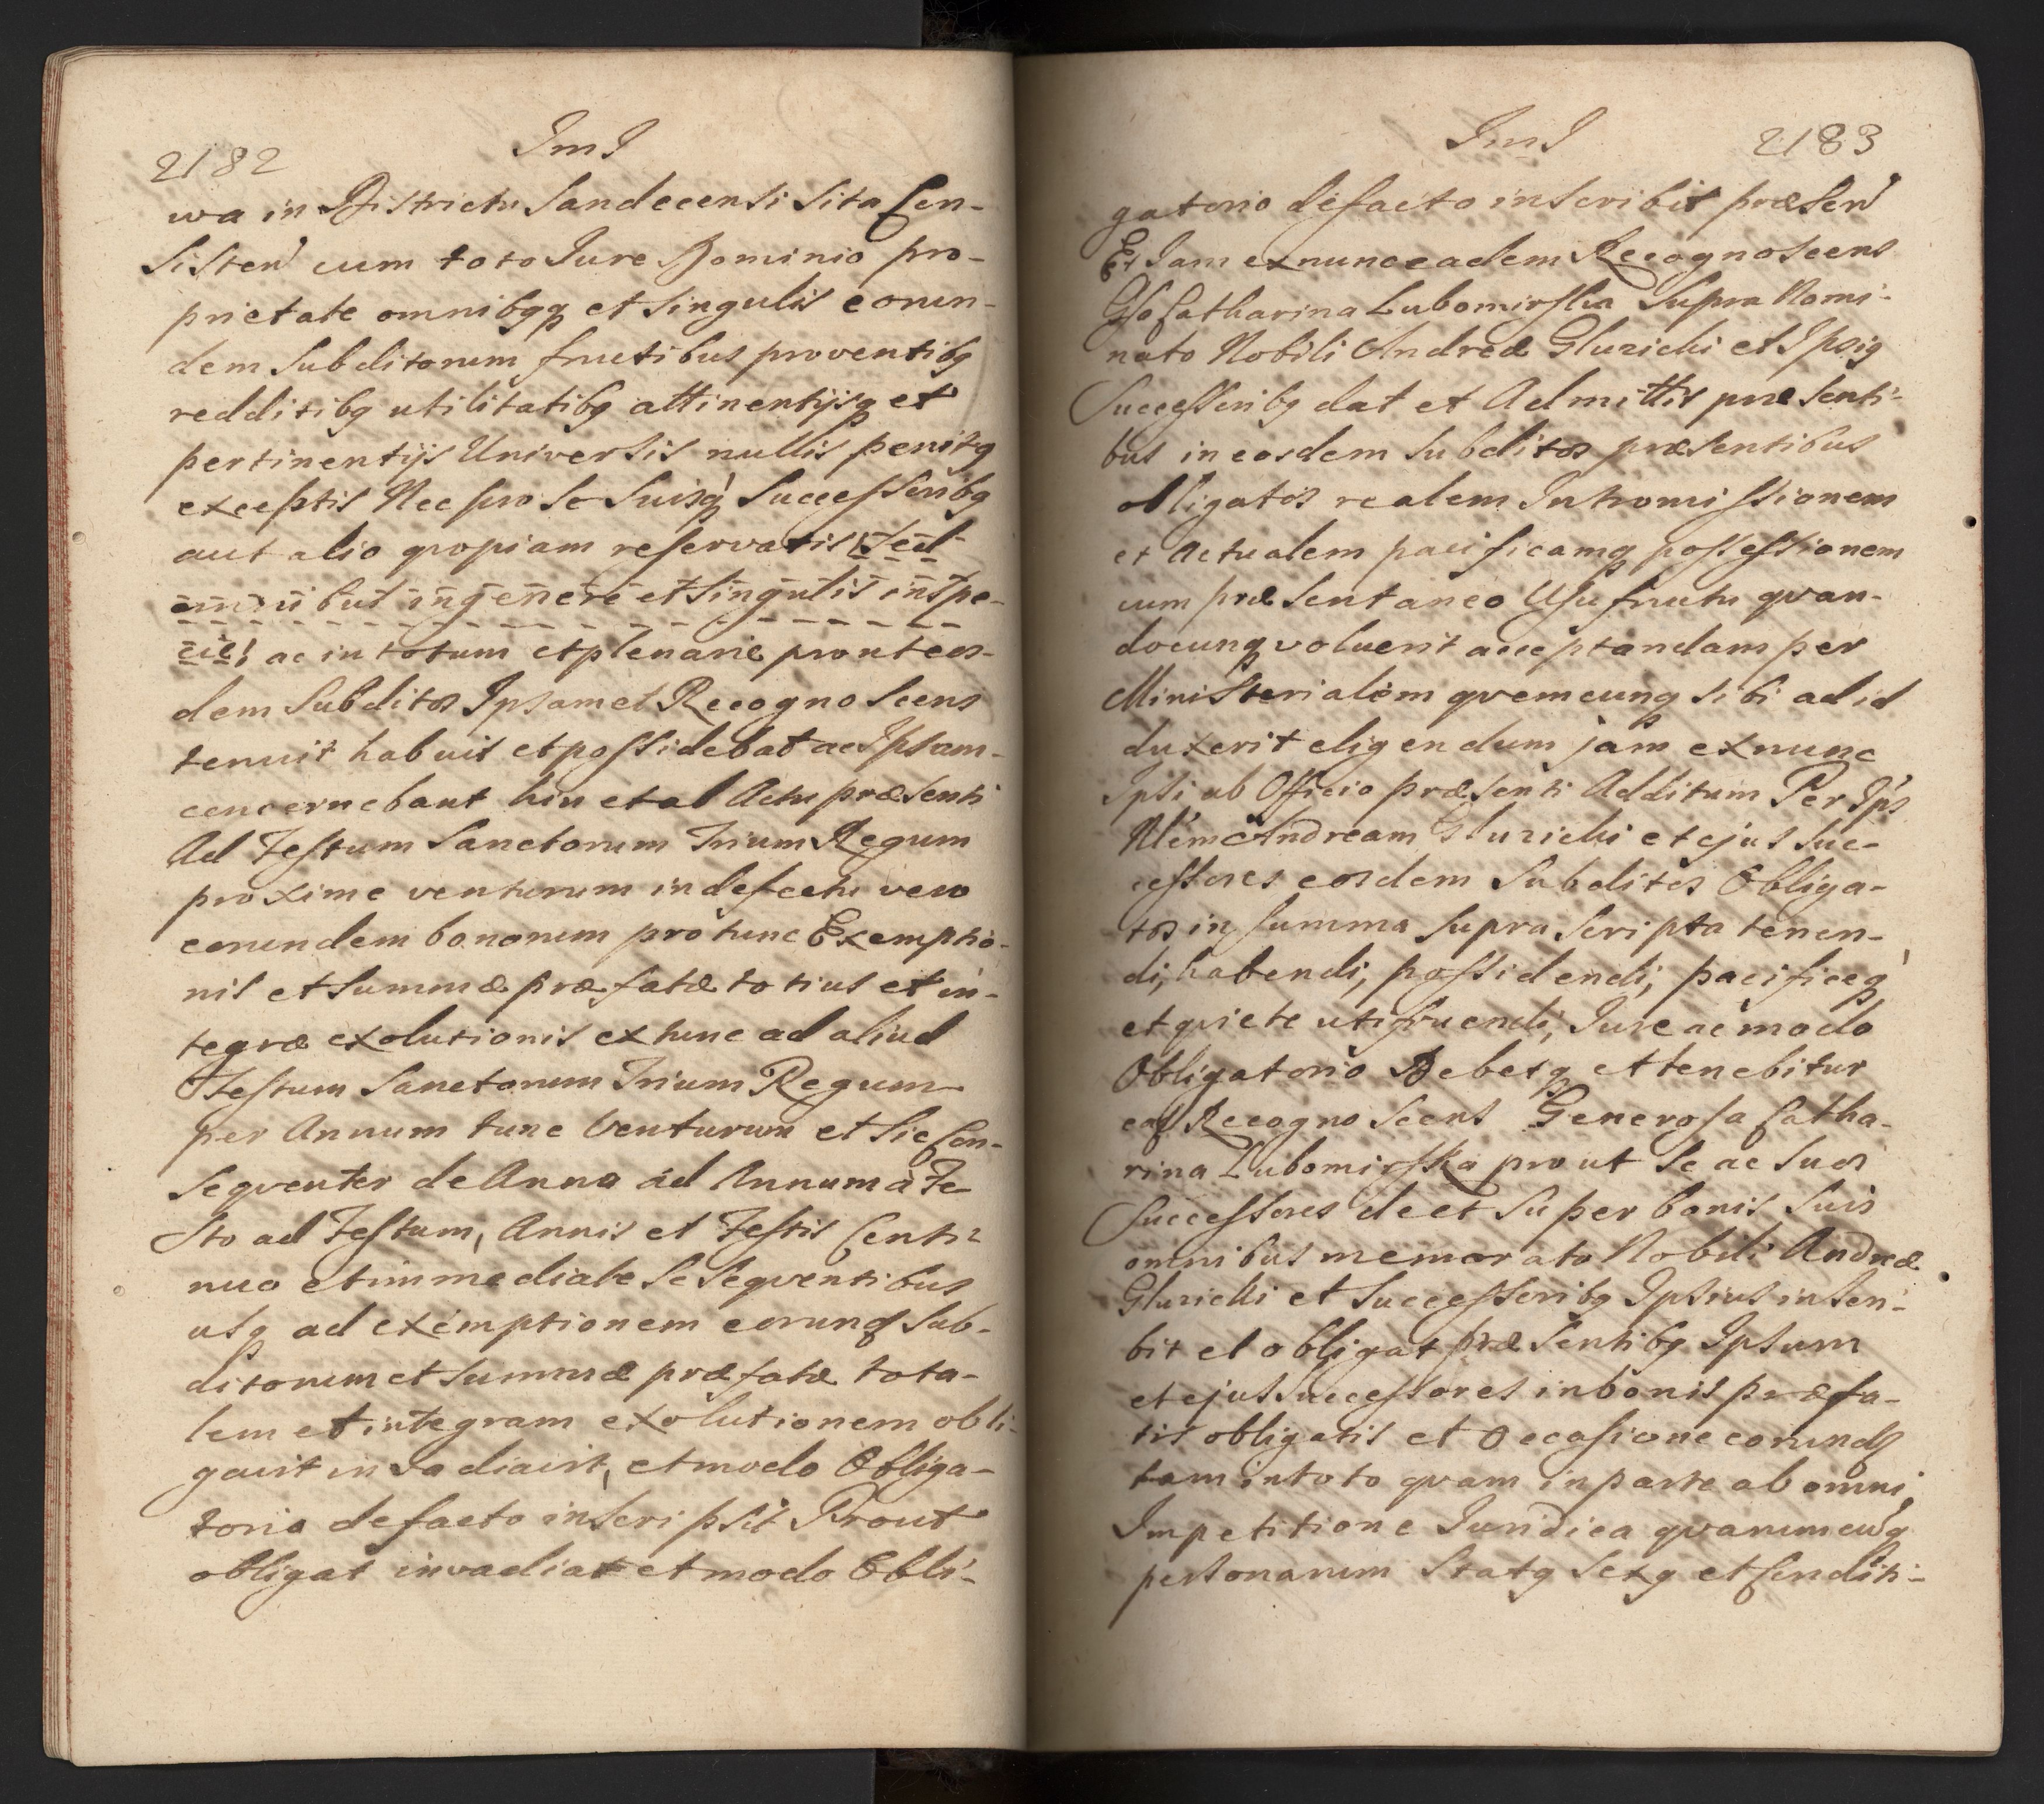 2182
ImI
wa in Districtu Sandecensi Sita Con-
Sisten cum toto Jure Dominio pro-
prietate omnibqq et Singulis eorun-
dem Subditorum fructibus proventibq
redditibq utilitatibq attinentijsq et
pertinentijs Universis nullis penitq
exceptis Nec pro Se Suisq Successoribq
aut alio qvopiam reservatis Sed
omnibus in genere et Singulis in Spe-
cie, ac in totum et plenarie prout eos-
dem Subditos Ipsamet Recognoscens
tenuit habuit et possidebat ac Ipsam
concernebant hin et ab Actu præsenti
Ad Festum Sanctorum Trium Regum
proxime venturum in defectu vero
eorundem bonorum pro tunc Exemptio-
nis et Summæ præfatæ totius et in-
tegræ exolutionis ex tunc ad aliud
Festum Sanctorum Trium Regum
per Annum tunc Venturum et Sic Con-
Seqventer de Anno ad Annum à Fe
Sto ad Festum, Annis et Festis Conti-
nuo et immediate Se Seqventibus
usq ad exemptionem eorund Sub-
ditorum et Summæ præfatæ tota-
lem et integram exolutionem obli-
gavit invadiavit, et modo Obliga-
torio de facto inscripsit Prout
obligat invadiat et modo Obli-
ImI
2183
gatorio de facto inscribit præsen
Et Jam ex nunc eadem Recognoscens
Gsa Catharina Lubomirska Supra Nomi-
nato Nobili Andreæ Gluzicki et Ipsiq
Successoribq dat et Admittit præsenti-
bus in eosdem Subditos præsentibus
obligatos realem Intromissionem
et Actualem pacificamq possessionem
cum præsentaneo Usufructu qvan-
docunq voluerit acceptandam per
Ministerialem qvemcunq Sibi ad id
duxerit eligendum jam ex nunc
Ipsi ab Officio præsenti Additum Per Ips
Nlem Andream Gluzicki et ejus Suc-
cessores eosdem Subditos Obliga-
tos in Summa Supra Scripta tenen-
di, habendi, possidendi, pacificeq
et qviete utifruendi, Jure ac modo
Obligatorio Debetq et tenebitur
ead Recognoscens Generosa Catha-
rina Lubomirska prout Se ac Suos
Successores de et Super bonis Suis
omnibus memorato Nobili Andreæ
Gluzicki et Successoribq Ipsius inscri-
bit et obligat præsentibq Ipsum
et ejus Successores in bonis præfa-
tis obligatis et Occasione eorund
tam in toto qvam in parte ab omni
Impetitione Juridica qvarumcunq
personarum Statq Sexq et Conditi-